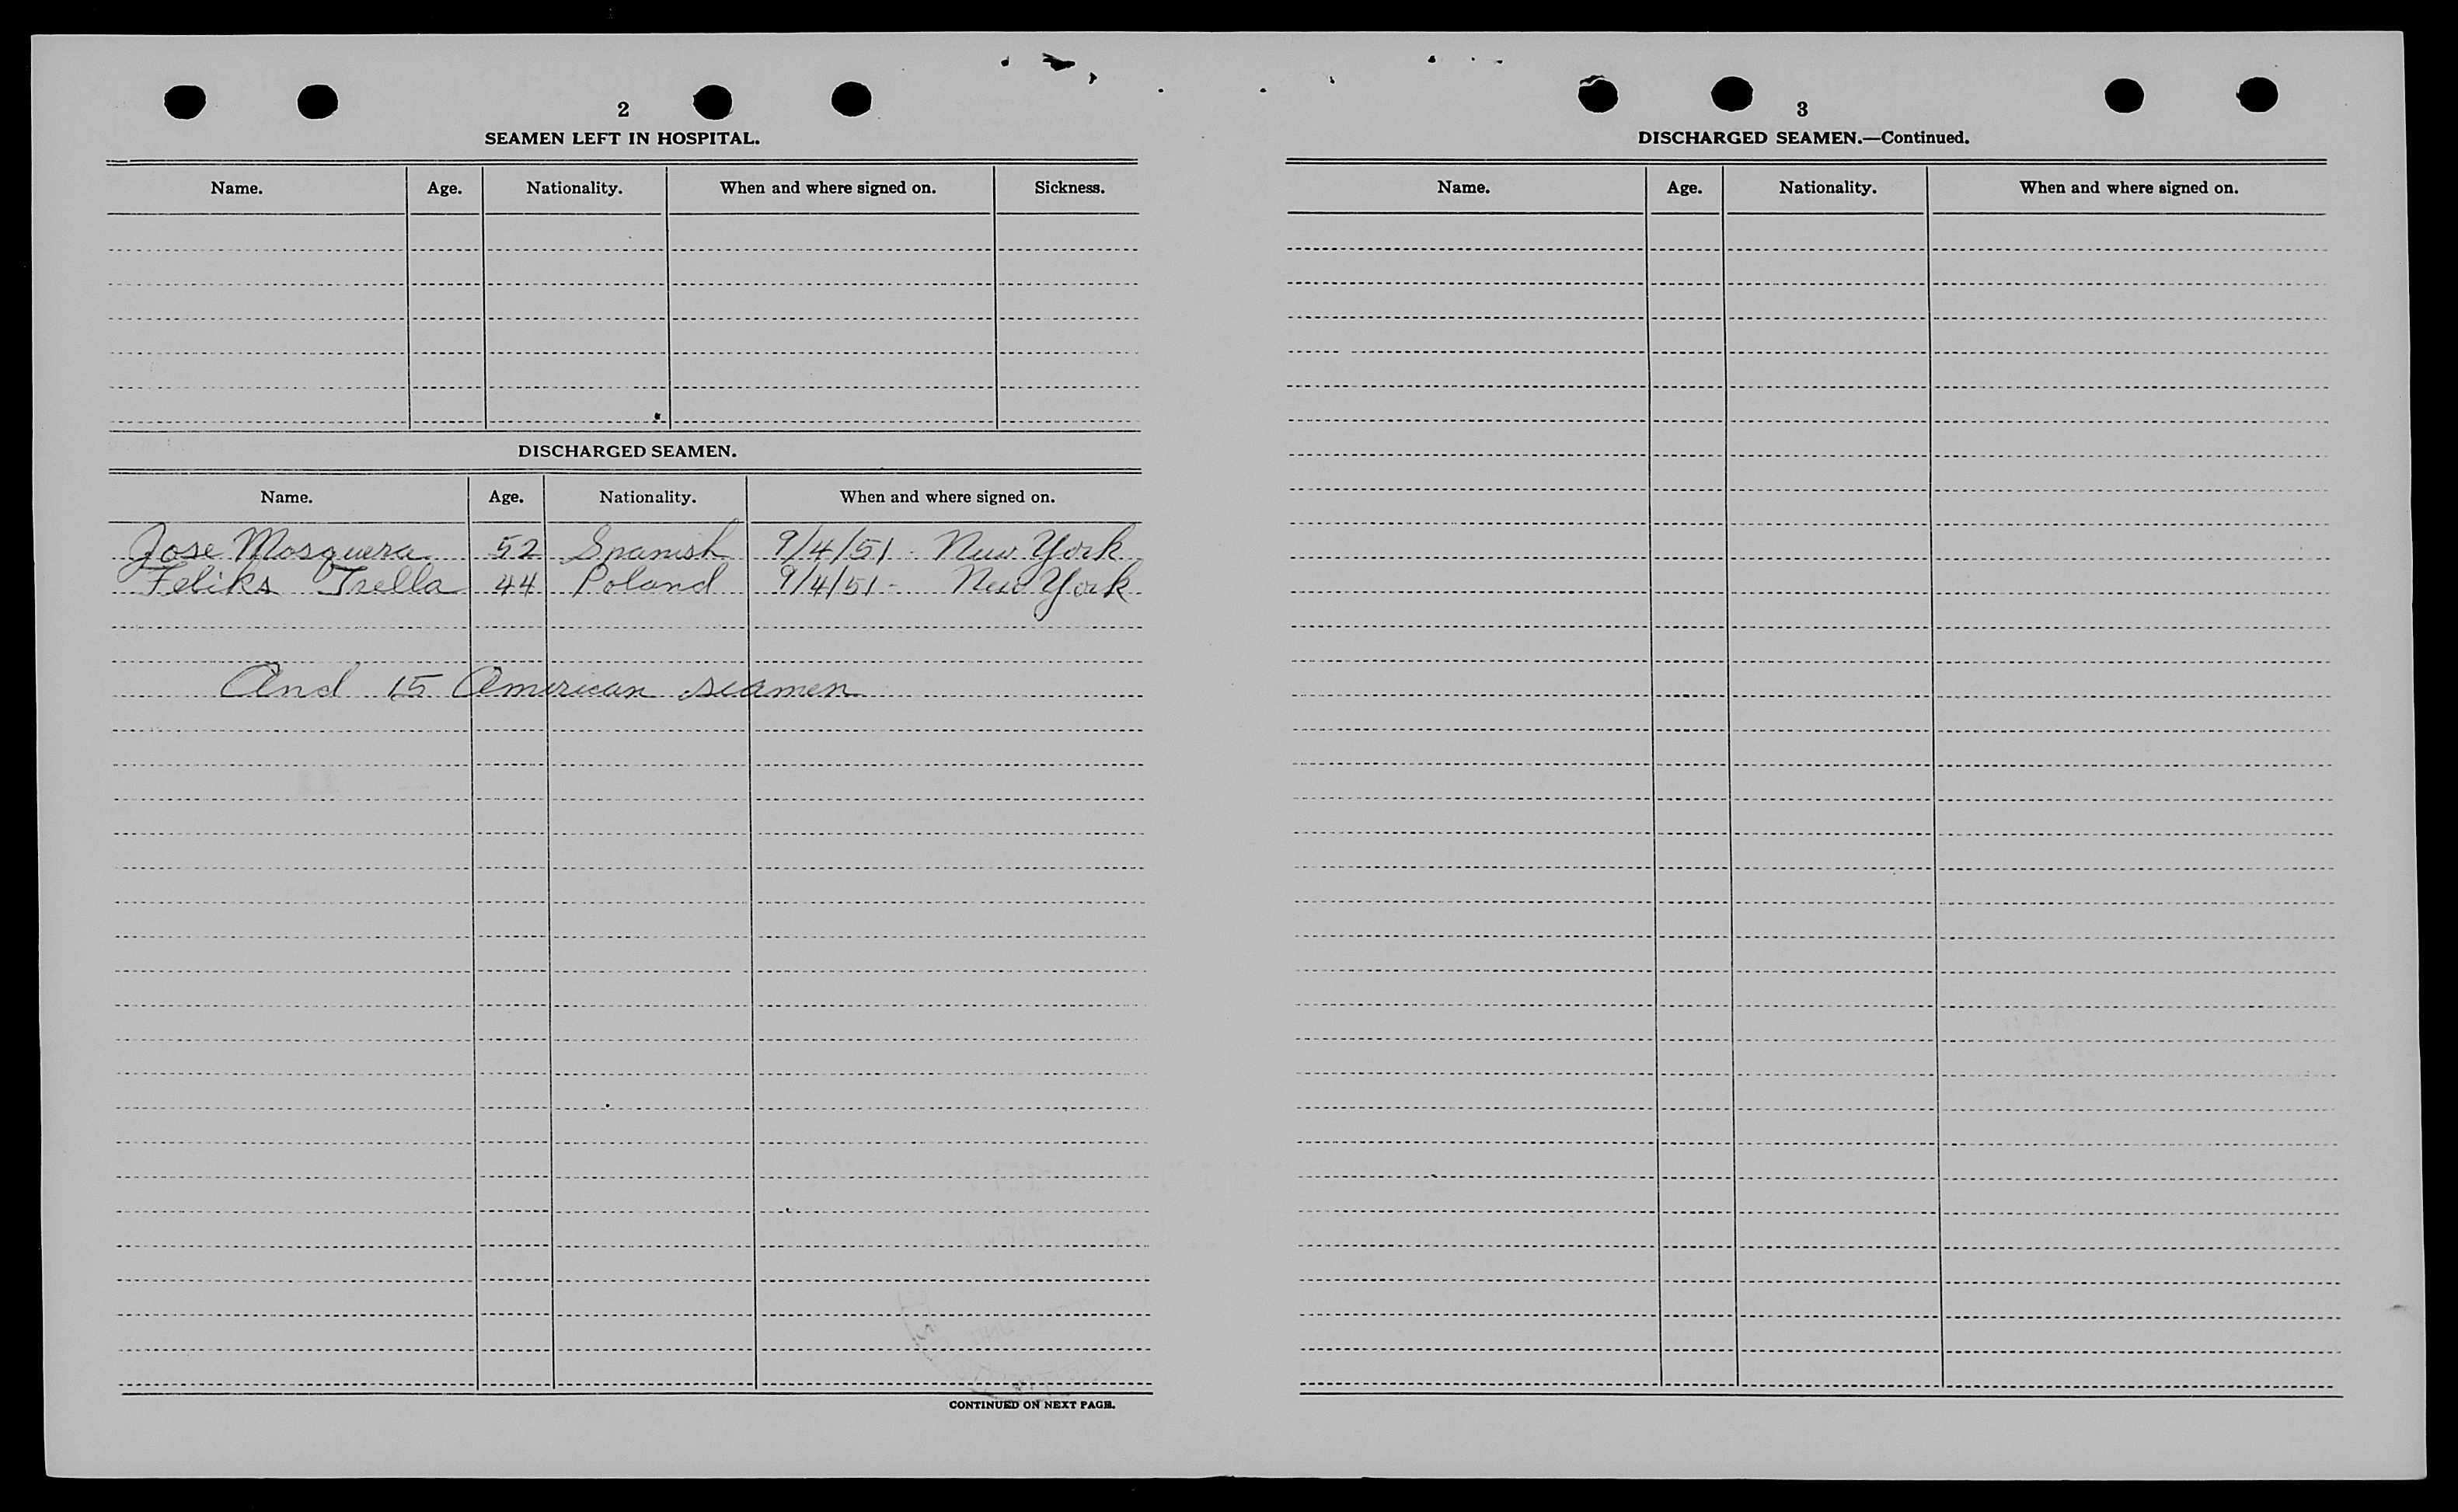 2
SEAMEN LEFT IN HOSPITAL.
Name. Age. Nationality. When and where signed on. Sickness.
DISCHARGED SEAMEN.
Name. Age. Nationality. When and where signed on.
Jose Mosquera 52 Spanish 9/4/51 - New York
Feliks Trella 44 Poland 9/4/51 - New York
And 15 American seamen
CONTINUED ON NEXT PAGE.
3
DISCHARGED SEAMEN.—Continued.
Name. Age. Nationality. When and where signed on.